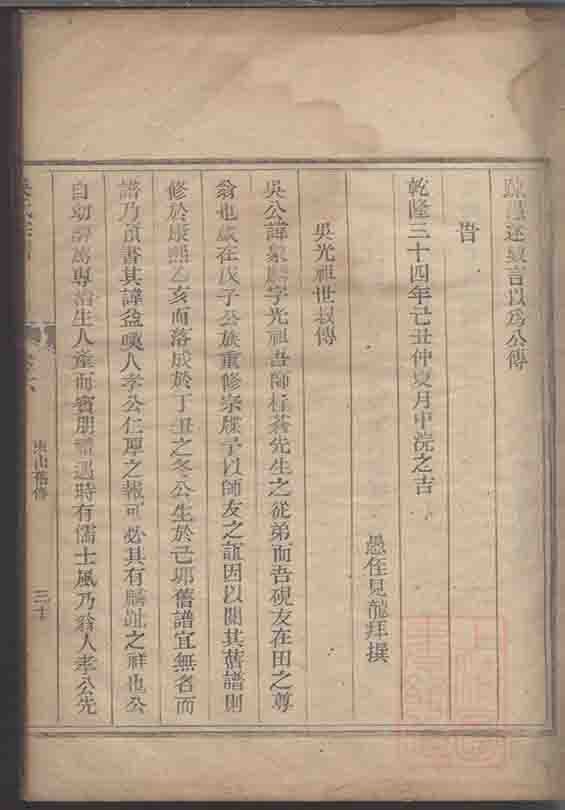 述眾言以為公傳
旹
乾隆三十四年己丑仲夏月中浣之吉
愚侄見龍拜撰
吳光祖世叔傳
吳公諱 字光祖吾師 蒼先生之從弟而吾硯友在田之尊
翁也歲在戊子公族重修宗牒予以師友之誼因以閱其舊譜則
修於康熙乙亥而落成於丁丑之冬公生於己卯舊譜宜無名而
譜乃預書其諱益嘆人孝公仁厚之報可必其有麟趾之祥也公
自幼 專治生人產而賓朋 遇時有儒士風乃翁人孝公先
東山舊傳
三十